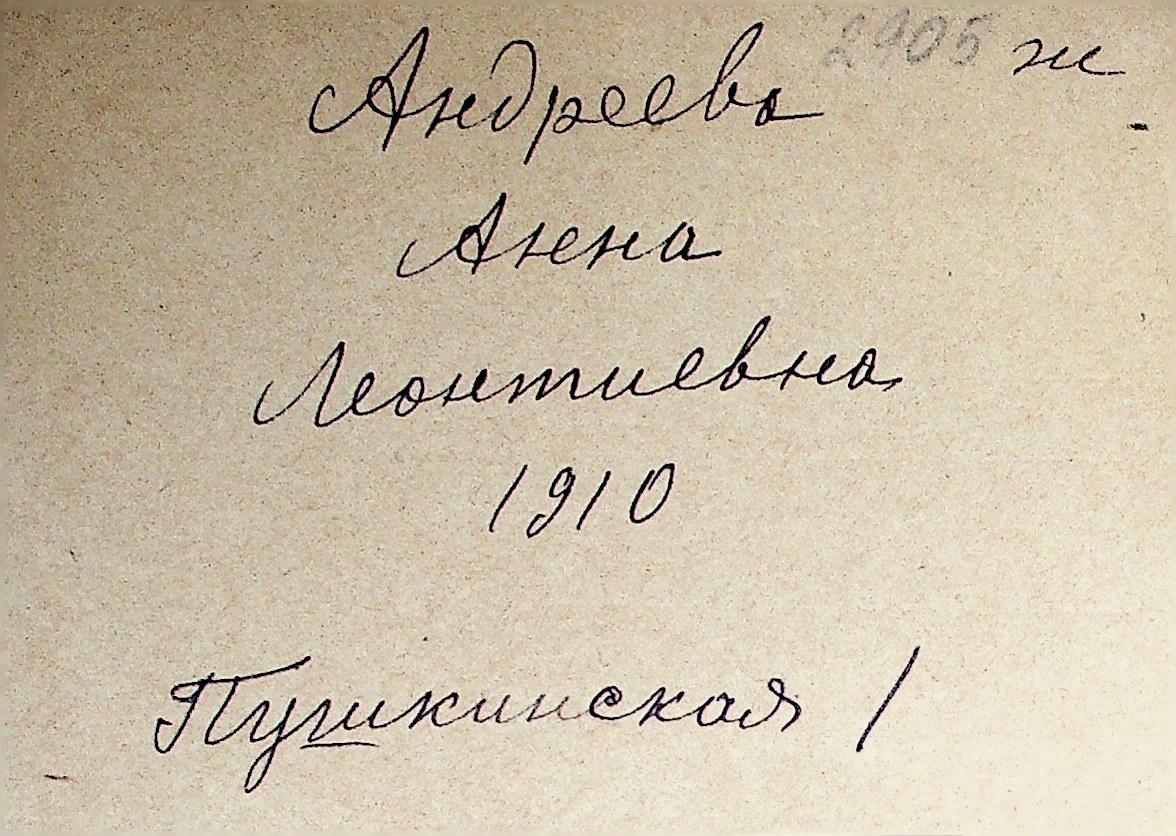 Андреева 2905 ж
Анна
Леонтиевна
1910
Пушкинская 1